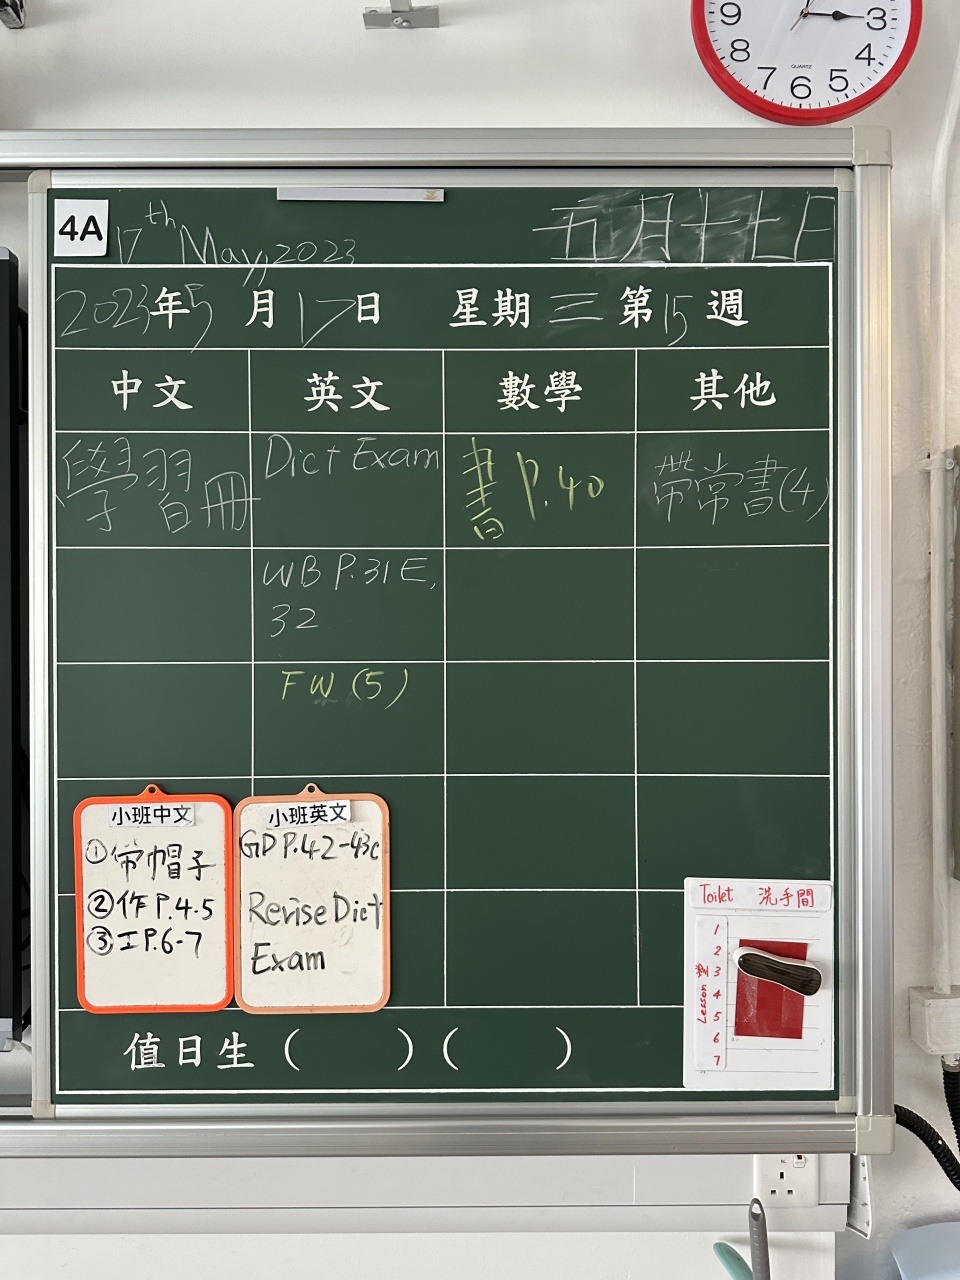 9 3
8 4
7 6 5
QUARTZ
4A 17th May, 2023 五月十七日
2023年5月17日 星期三 第15週
中文 英文 數學 其他
學習冊 Dict Exam 書 P.40 帶常書(4)
WB P.31E,
32
FW (5)
小班中文
①帶帽子
②作P.4.5
③工P.6-7
小班英文
GD P.42-43c
Revise Dict
Exam
Toilet 洗手間
Lesson 堂
1
2
3
4
5
6
7
值日生 ( ) ( )